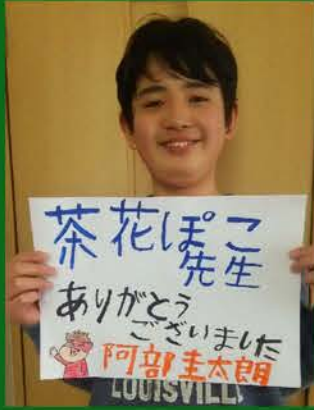 茶花ぽこ
先生
ありがとう
ございました
阿部圭太朗
LOUISVILL